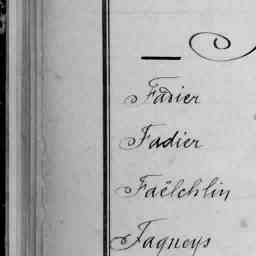 Fadier
Fadier
Faëlchlin
Fagneys